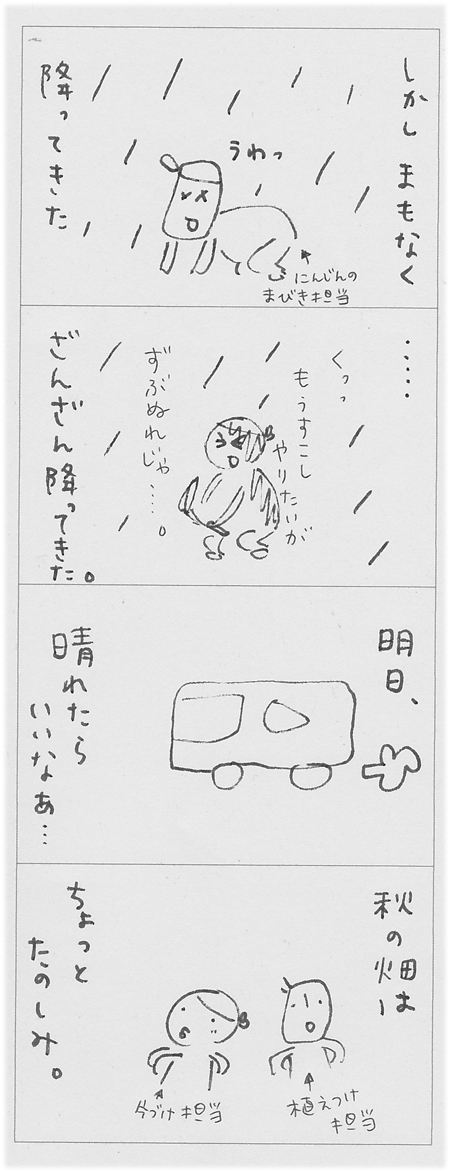 しかし まもなく
うわっ
にんじんの
まびき担当
降ってきた
・・・・・
くっっ
もうすこし
やりたいが
ずぶぬれじゃ……。
ざんざん降ってきた。
明日、
晴れたら
いいなぁ…
秋の畑は
植えつけ
担当
担当
ちょっと
たのしみ。